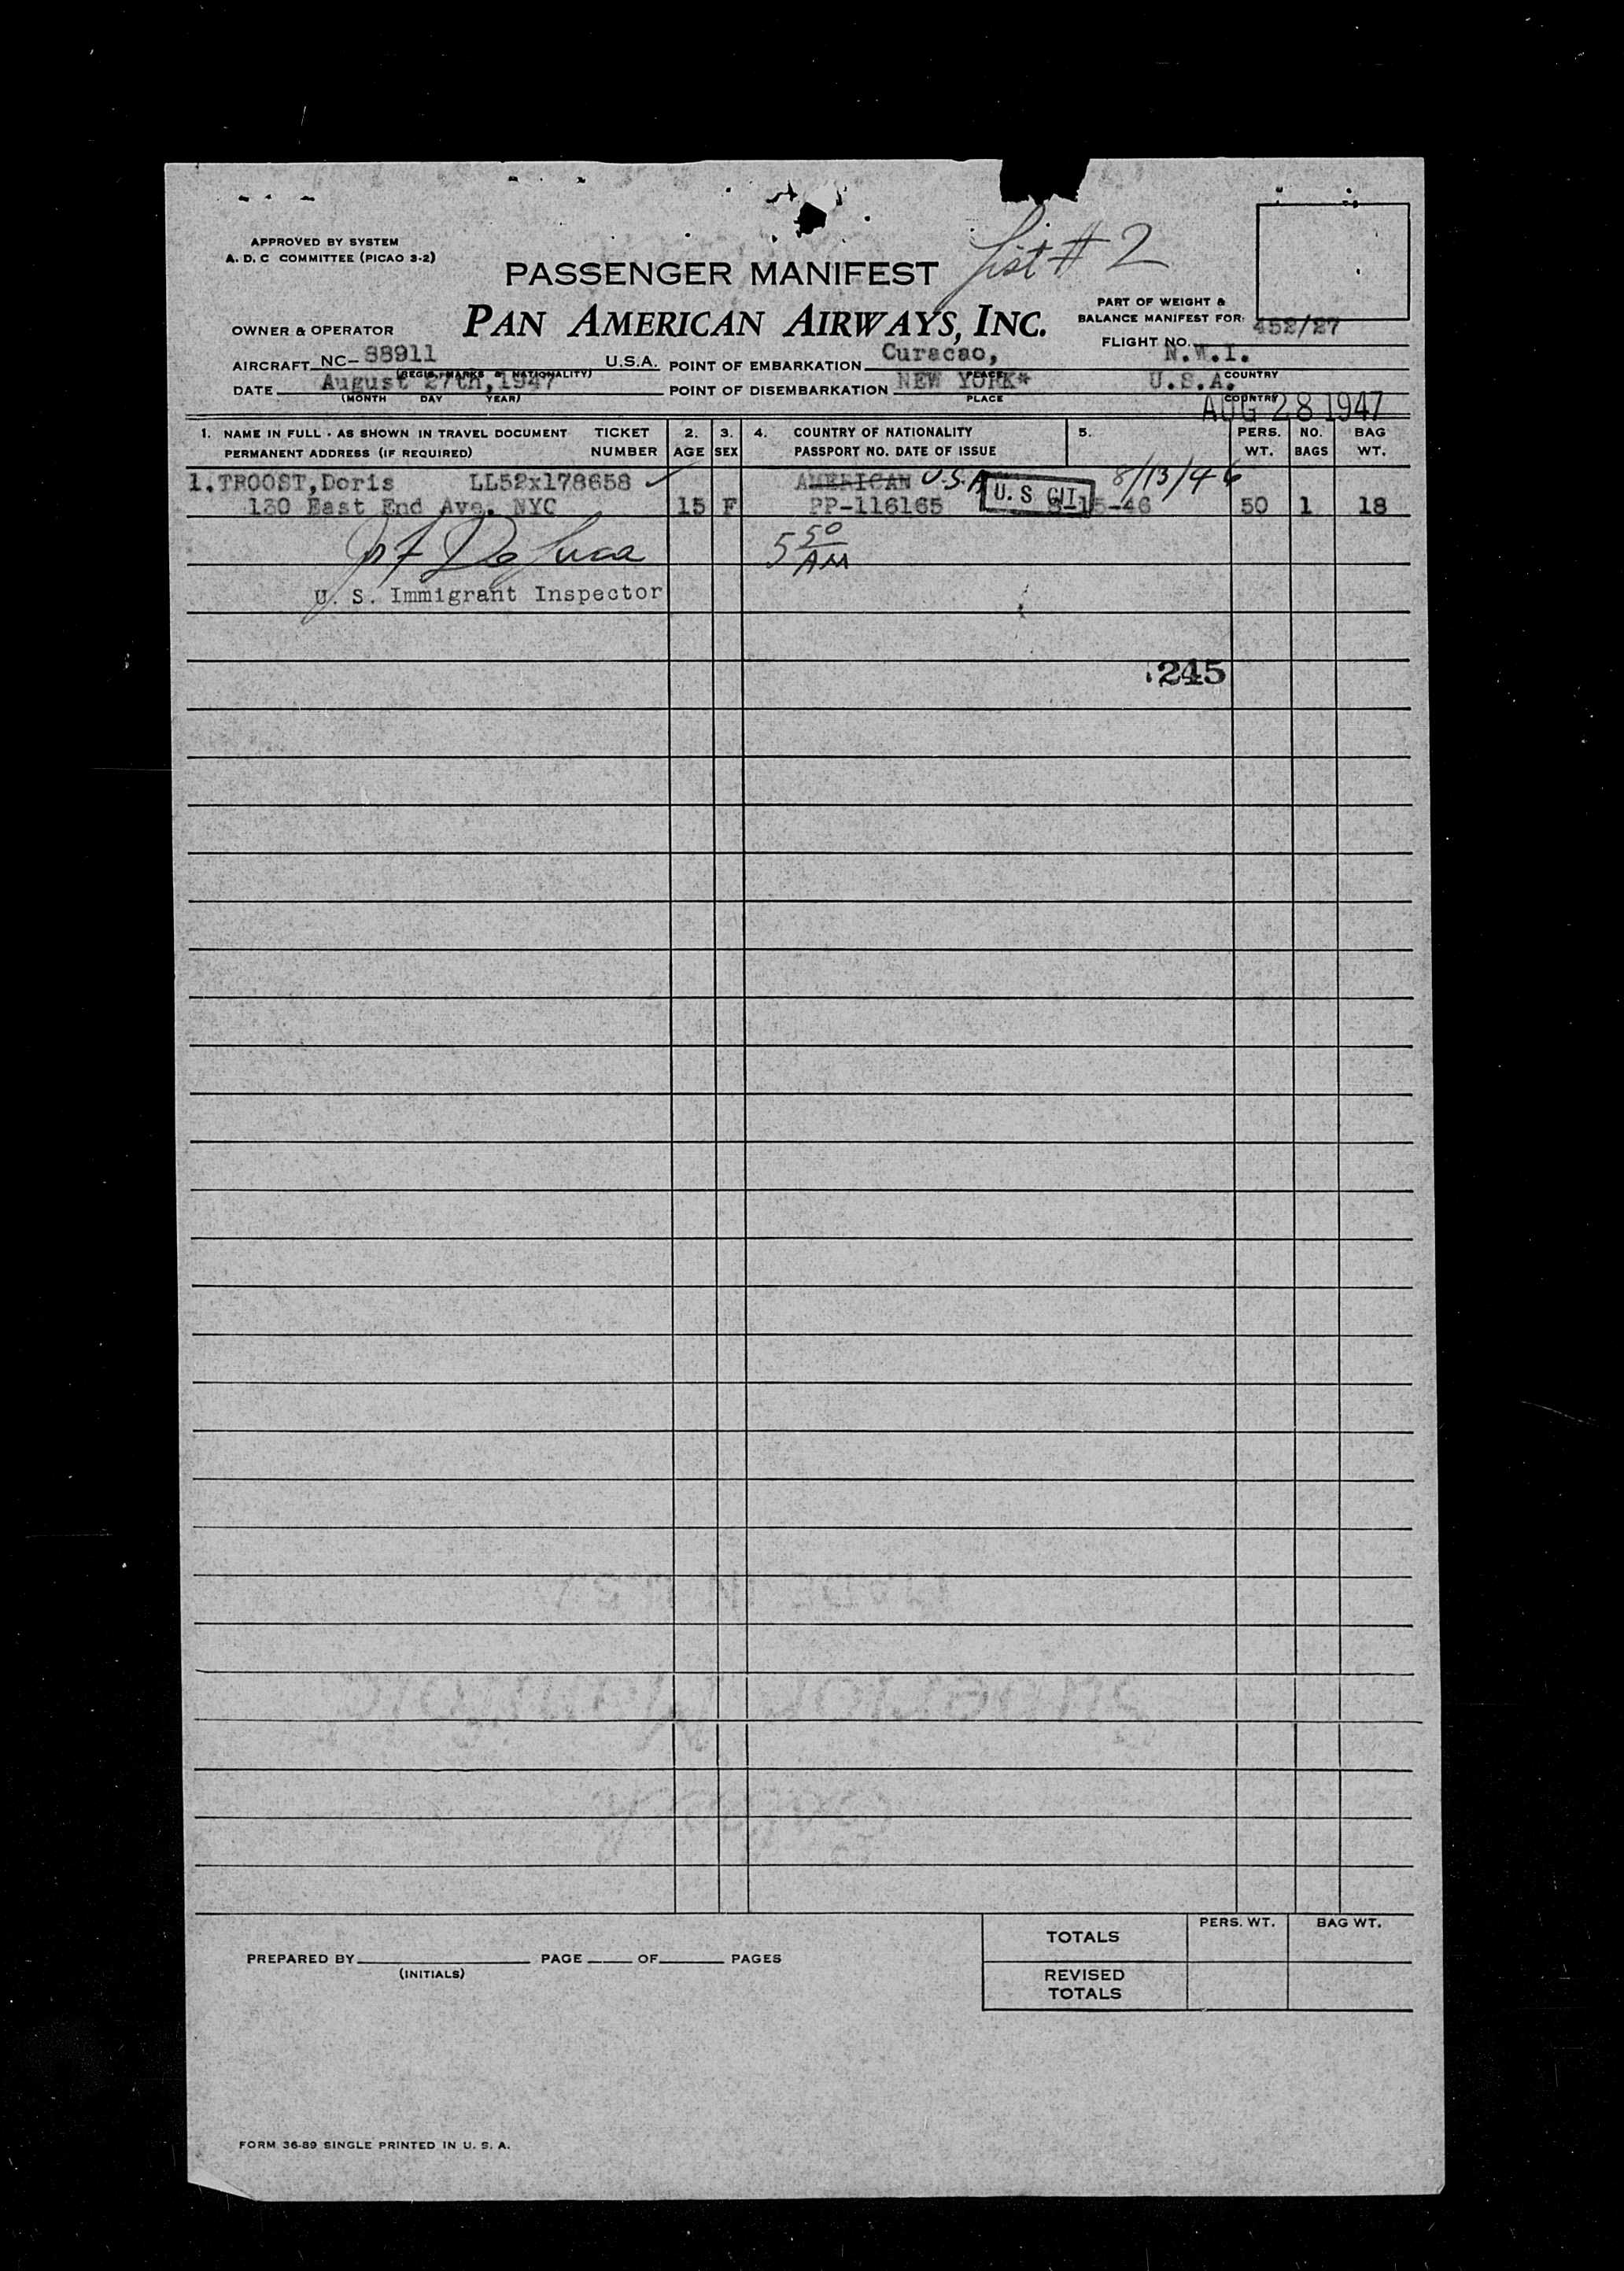 List # 2
APPROVED BY SYSTEM
A. D. C COMMITTEE (PICAO 3-2)
PASSENGER MANIFEST
PAN AMERICAN AIRWAYS, INC.
PART OF WEIGHT &
BALANCE MANIFEST FOR:
FLIGHT NO. 452/27
OWNER & OPERATOR
AIRCRAFT NC-88911 U.S.A. POINT OF EMBARKATION Curacao, N.W.I.
(REGIS. MARKS & NATIONALITY) PLACE COUNTRY
DATE August 27th, 1947 POINT OF DISEMBARKATION NEW YORK* U.S.A.
(MONTH DAY YEAR) PLACE COUNTRY
AUG 28 1947
1. NAME IN FULL - AS SHOWN IN TRAVEL DOCUMENT TICKET 2. 3. 4. COUNTRY OF NATIONALITY 5. PERS. NO. BAG
PERMANENT ADDRESS (IF REQUIRED) NUMBER AGE SEX PASSPORT NO. DATE OF ISSUE WT. BAGS WT.
1. TROOST, Doris LL52x178658 AMERICAN U.S.A U. S CIT 8/13/46
130 East End Ave. NYC 15 F PP-116165 8-15-46 50 1 18
5 50 AM
U. S. Immigrant Inspector
245
PERS. WT. BAG WT.
TOTALS
PREPARED BY PAGE OF PAGES
(INITIALS)
REVISED
TOTALS
FORM 36-89 SINGLE PRINTED IN U. S. A.